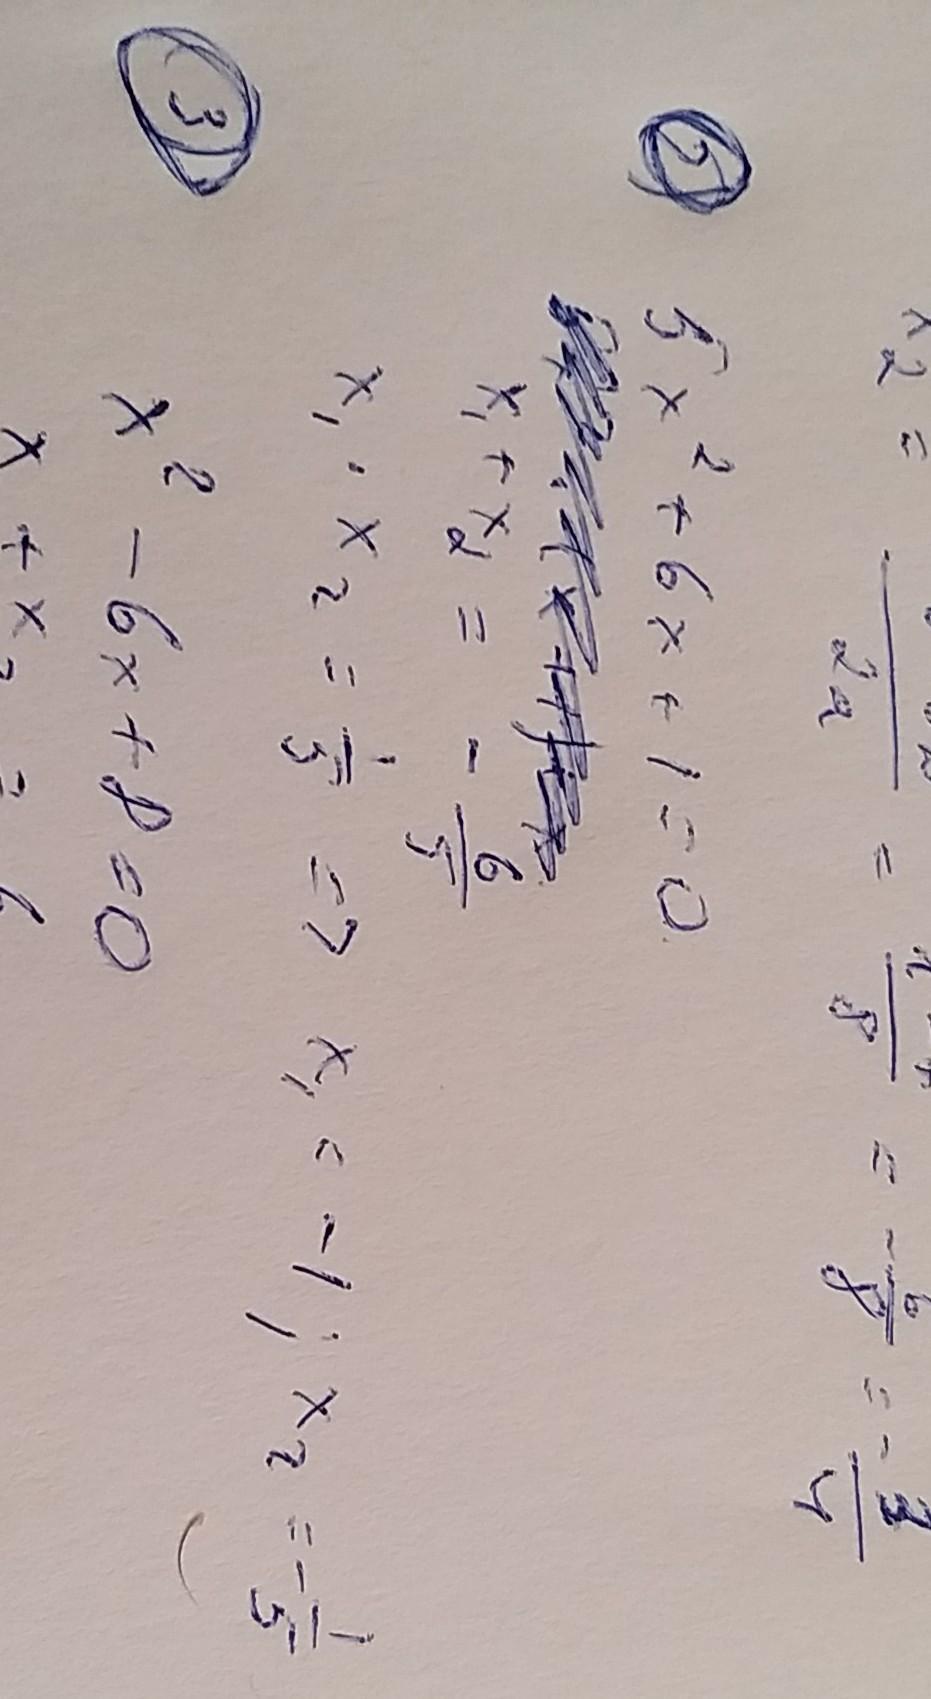 x₂ = / 2a = / 8 = - 6/8 = - 3/4
② 5x² + 6x + 1 = 0
x₁ + x₂ = - 6/5
x₁ · x₂ = 1/5 => x₁ = -1 ; x₂ = - 1/5
③ x² - 6x + 8 = 0
x + x₂ = 6